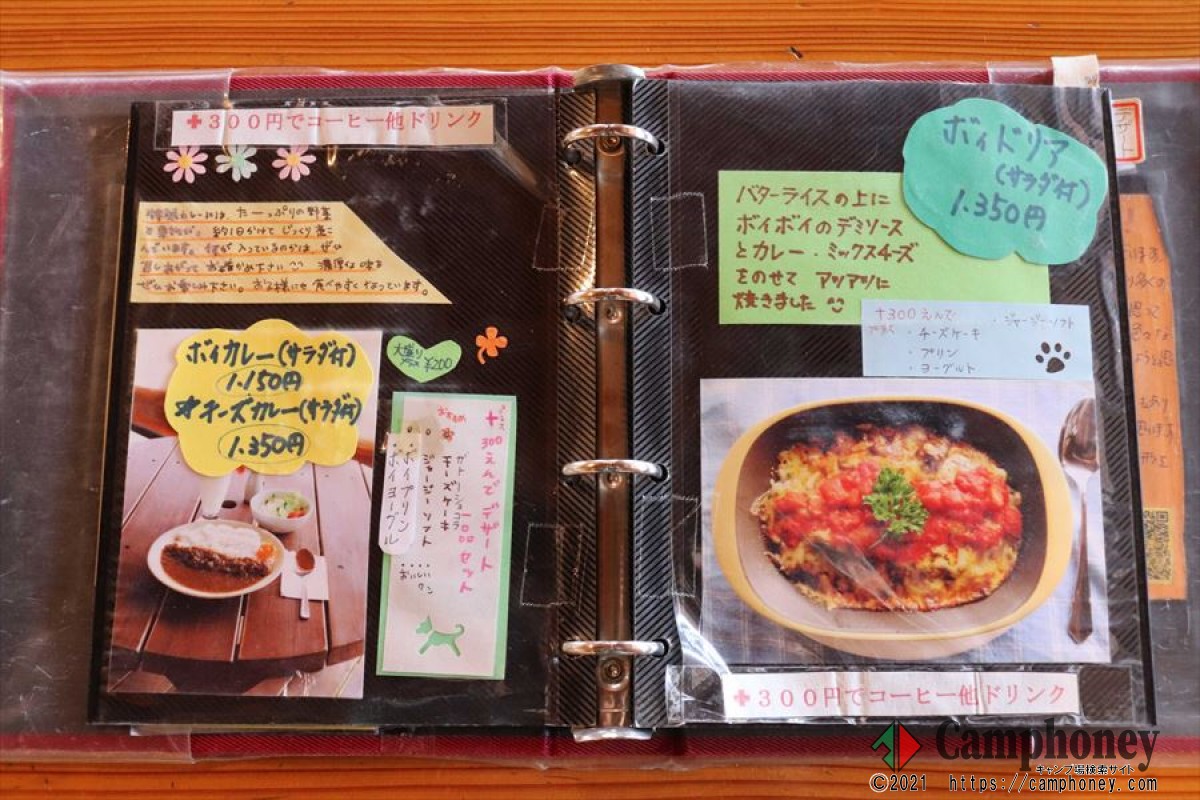 +300円でコーヒー他ドリンク
カレーは、たーっぷりの野菜
約1日かけてじっくり煮こ
んでいます。何が入っているのかは、ぜひ
召しあがって お確かめ下さい 濃厚な味を
ぜひお楽しみ下さい。お子様にも食べやすくなっています。
ボイカレー(サラダ付)
1.150円
☆チーズカレー(サラダ付)
1.350円
大盛り
プラス ¥200
プラス
+300えんでデザート
一品セット
おすすめ
ガトーショコラ
チーズケーキ
ジャージーソフト
ボイプリン
ボイヨーグル
おいしいワン
ボイドリア
(サラダ付)
1.350円
バターライスの上に
ボイボイのデミソース
とカレー・ミックスチーズ
をのせて アツアツに
焼きました
+300えんで
・ジャージーソフト
・チーズケーキ
・プリン
・ヨーグルト
+300円でコーヒー他ドリンク
デザート
Camphoney
キャンプ場検索サイト
©2021 https://camphoney.com